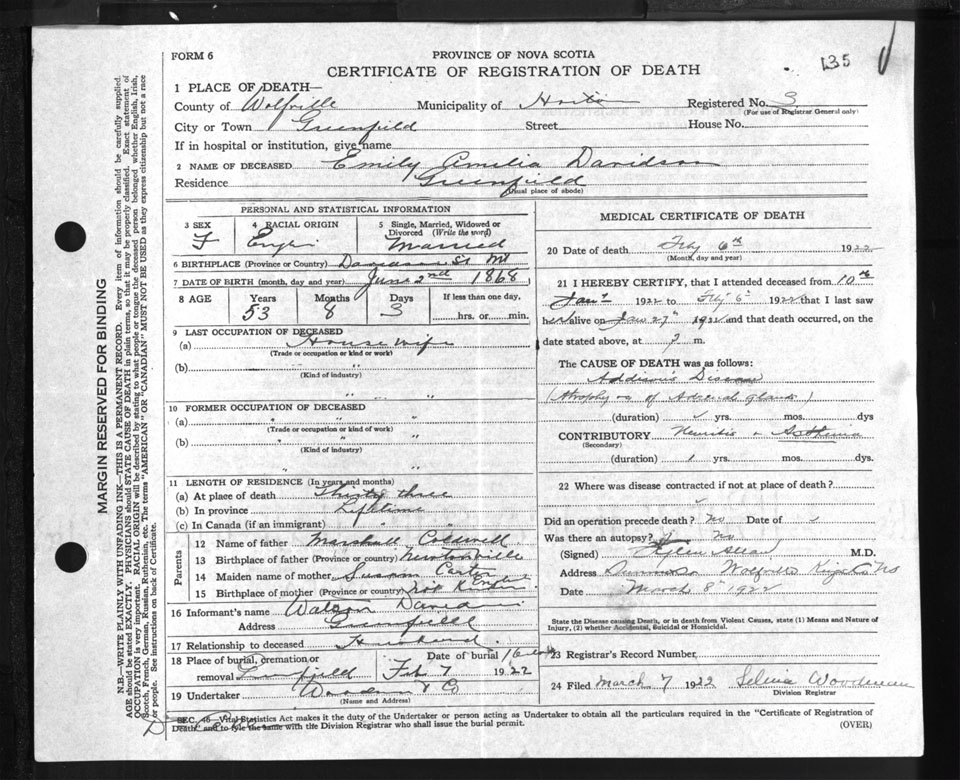 135
FORM 6
PROVINCE OF NOVA SCOTIA
CERTIFICATE OF REGISTRATION OF DEATH
1 PLACE OF DEATH—
County of Wolfville Municipality of Horton Registered No. 3
(For use of Registrar General only)
City or Town Greenfield Street House No.
If in hospital or institution, give name
2 NAME OF DECEASED Emily Amelia Davidson
Residence Greenfield
(Usual place of abode)
PERSONAL AND STATISTICAL INFORMATION
3 SEX F
4 RACIAL ORIGIN
5 Single, Married, Widowed or Divorced (Write the word) Married
6 BIRTHPLACE (Province or Country) Davidson St
7 DATE OF BIRTH (month, day and year) June 2nd 1868
8 AGE Years Months Days If less than one day,
53 8 3 hrs. or min.
9 LAST OCCUPATION OF DECEASED
(a) House wife
(Trade or occupation or kind or work)
(b)
(Kind of industry)
10 FORMER OCCUPATION OF DECEASED
(a)
(Trade or occupation or kind of work)
(b)
(Kind of industry)
11 LENGTH OF RESIDENCE (In years and months)
(a) At place of death Thirty three
(b) In province Lifetime
(c) In Canada (if an immigrant)
Parents
12 Name of father Marshall Coldwell
13 Birthplace of father (Province or country) Newtonville
14 Maiden name of mother Susan
15 Birthplace of mother (Province or country)
16 Informant's name Watson
Address Greenfield
17 Relationship to deceased Husband
18 Place of burial, cremation or removal Greenfield Date of burial Feb 7 1922
19 Undertaker Woodman & Co
(Name and Address)
MEDICAL CERTIFICATE OF DEATH
20 Date of death Feby 6th 1922
(Month, day and year)
21 I HEREBY CERTIFY, that I attended deceased from 10th
Jany 1922 to Feby 6th 1922 that I last saw
her alive on Jan 27th 1922 and that death occurred, on
date stated above, at ? m.
The CAUSE OF DEATH was as follows:
Addison's Disease
(Atrophy of Adrenal Glands)
(duration) yrs. mos. dys
CONTRIBUTORY Neuritis
(Secondary)
(duration) 1 yrs. mos. dys.
22 Where was disease contracted if not at place of death?
Did an operation precede death? No Date of
Was there an autopsy? No
(Signed) M.D.
Address Wolfville Kings Co NS
Date March 8th 1922
State the Disease causing Death, or in death from Violent Causes, state (1) Means and Nature of
Injury, (2) whether Accidental, Suicidal or Homicidal.
23 Registrar's Record Number
24 Filed March 7 1922 Selina Woodman
Division Registrar
SEC. 46 Vital Statistics Act makes it duty of the Undertaker or person acting as Undertaker to obtain all the particulars required in the "Certificate of Registration of
Death" and to file the same with the Division Registrar who shall issue the burial permit.
(OVER)
MARGIN RESERVED FOR BINDING
N.B.—WRITE PLAINLY WITH UNFADING INK—THIS IS A PERMANENT RECORD. Every item of information should be carefully supplied.
AGE should be stated EXACTLY. PHYSICIANS should STATE CAUSE OF DEATH in plain terms, so that it may be properly classified. Exact statement of
OCCUPATION is very important. RACIAL ORIGIN will be described by stating to what people or tongue the deceased person belonged whether English, Irish,
Scotch, French, German, Russian, Ruthenian, etc. The terms "AMERICAN" OR "CANADIAN" MUST NOT BE USED as they express citizenship but not a race
or people. See instructions on back of Certificate.